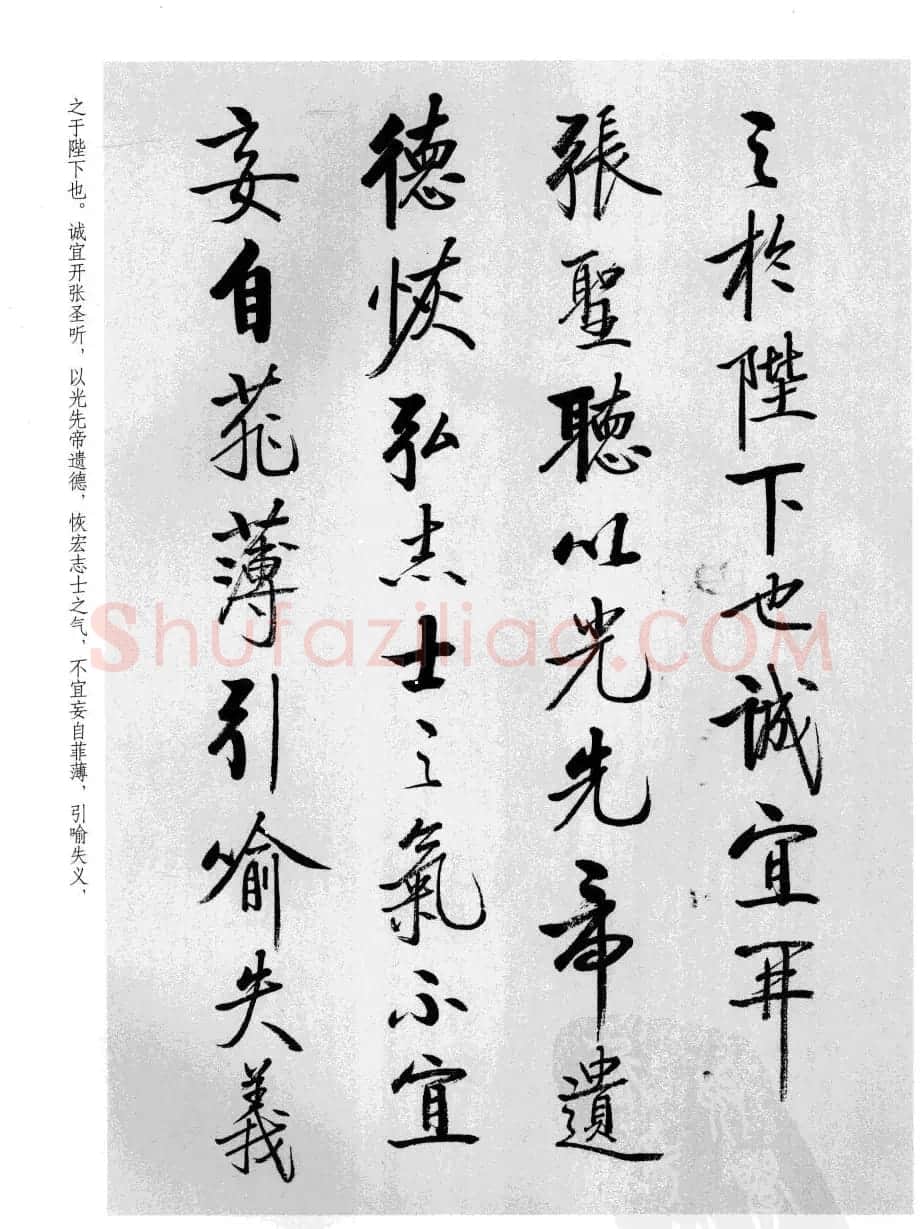 之於陛下也誠宜開
張聖聽以光先帝遺
德恢弘志士之氣不宜
妄自菲薄引喻失義
之于陛下也。诚宜开张圣听，以光先帝遗德，恢宏志士之气，不宜妄自菲薄，引喻失义，
Shufaziliao.COM